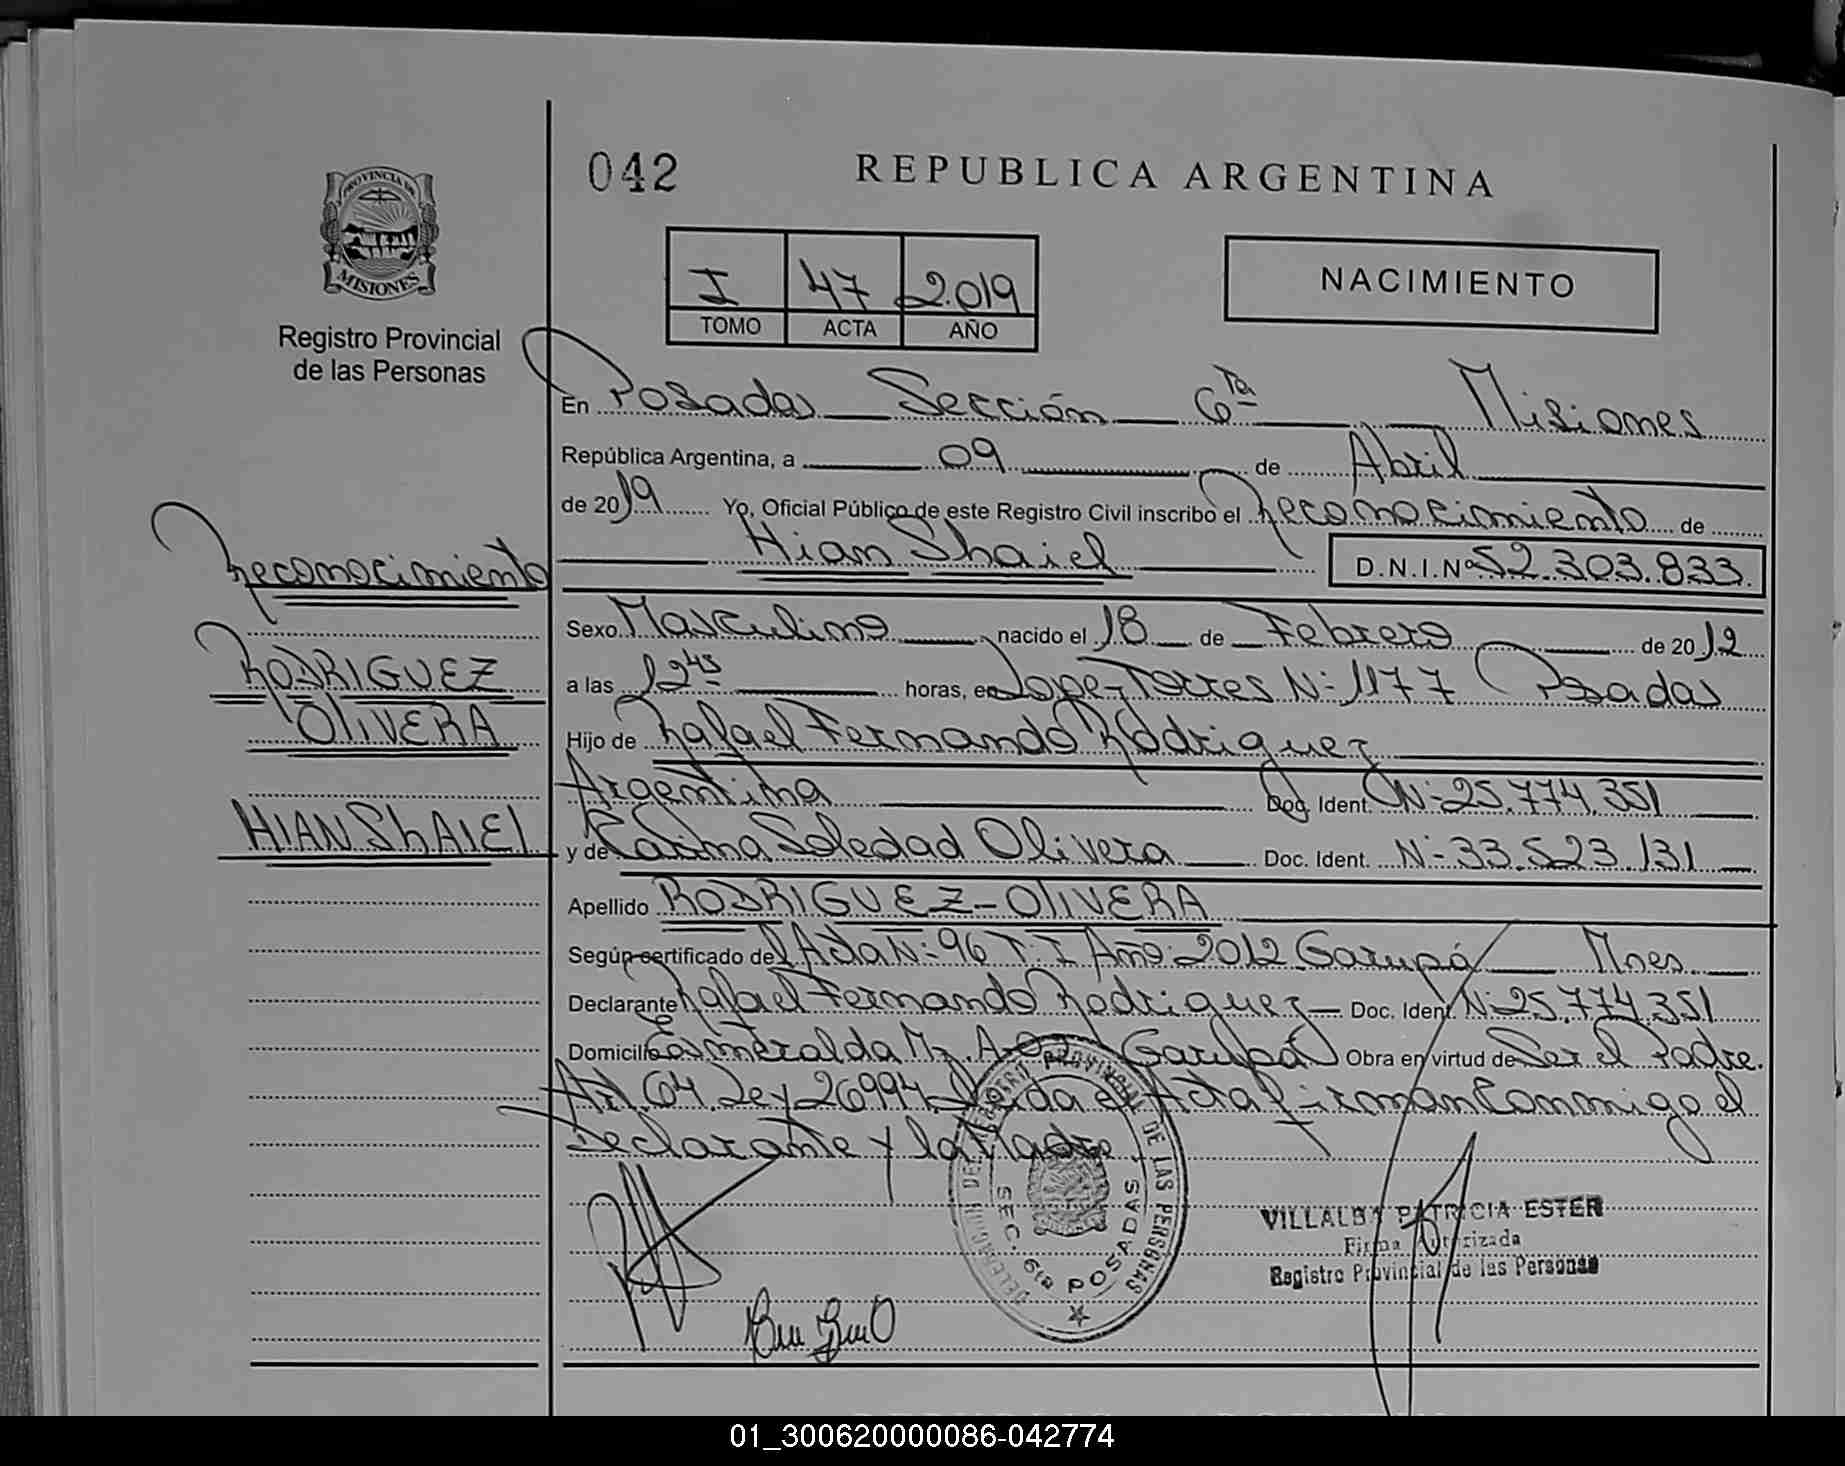 042
REPUBLICA ARGENTINA
PROVINCIA DE
MISIONES
Registro Provincial
de las Personas
I 47 2.019
TOMO ACTA AÑO
NACIMIENTO
En Posadas Sección 6ta Misiones
República Argentina, a 09 de Abril
de 2019 Yo, Oficial Público de este Registro Civil inscribo el Reconocimiento de
Hian Shaiel D.N.I.Nº 52.303.833.
Reconocimiento
RODRIGUEZ
OLIVERA
HIAN ShAIEl
Sexo Masculino nacido el 18 de Febrero de 2012
a las 12 45 horas, en Lopez Torres N: 1177 Posadas
Hijo de Rafael Fernando Rodriguez
Argentina Doc. Ident. N: 25.774.351
y de Karina Soledad Olivera Doc. Ident. N: 33.523.131
Apellido RODRIGUEZ - OlIVERA
Según certificado del Acta N: 96 T: I Año: 2012 Garupá Mnes
Declarante Rafael Fernando Rodriguez Doc. Ident. N: 25.774.351
Domicilio Esmeralda Mz. A Garupá Obra en virtud de Ser el Padre.
Art. 64 Ley 26994 Leida el Acta firman Conmigo el
declarante y la Madre
DELEGACION DEL REGISTRO PROVINCIAL DE LAS PERSONAS
SEC. 6ta POSADAS
VILLALBA PATRICIA ESTER
Firma Autorizada
Registro Provincial de las Personas
01_300620000086-042774